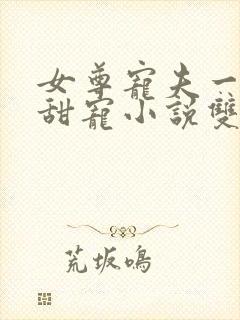 女尊寵夫一
甜寵小說雙
荒坂鳴